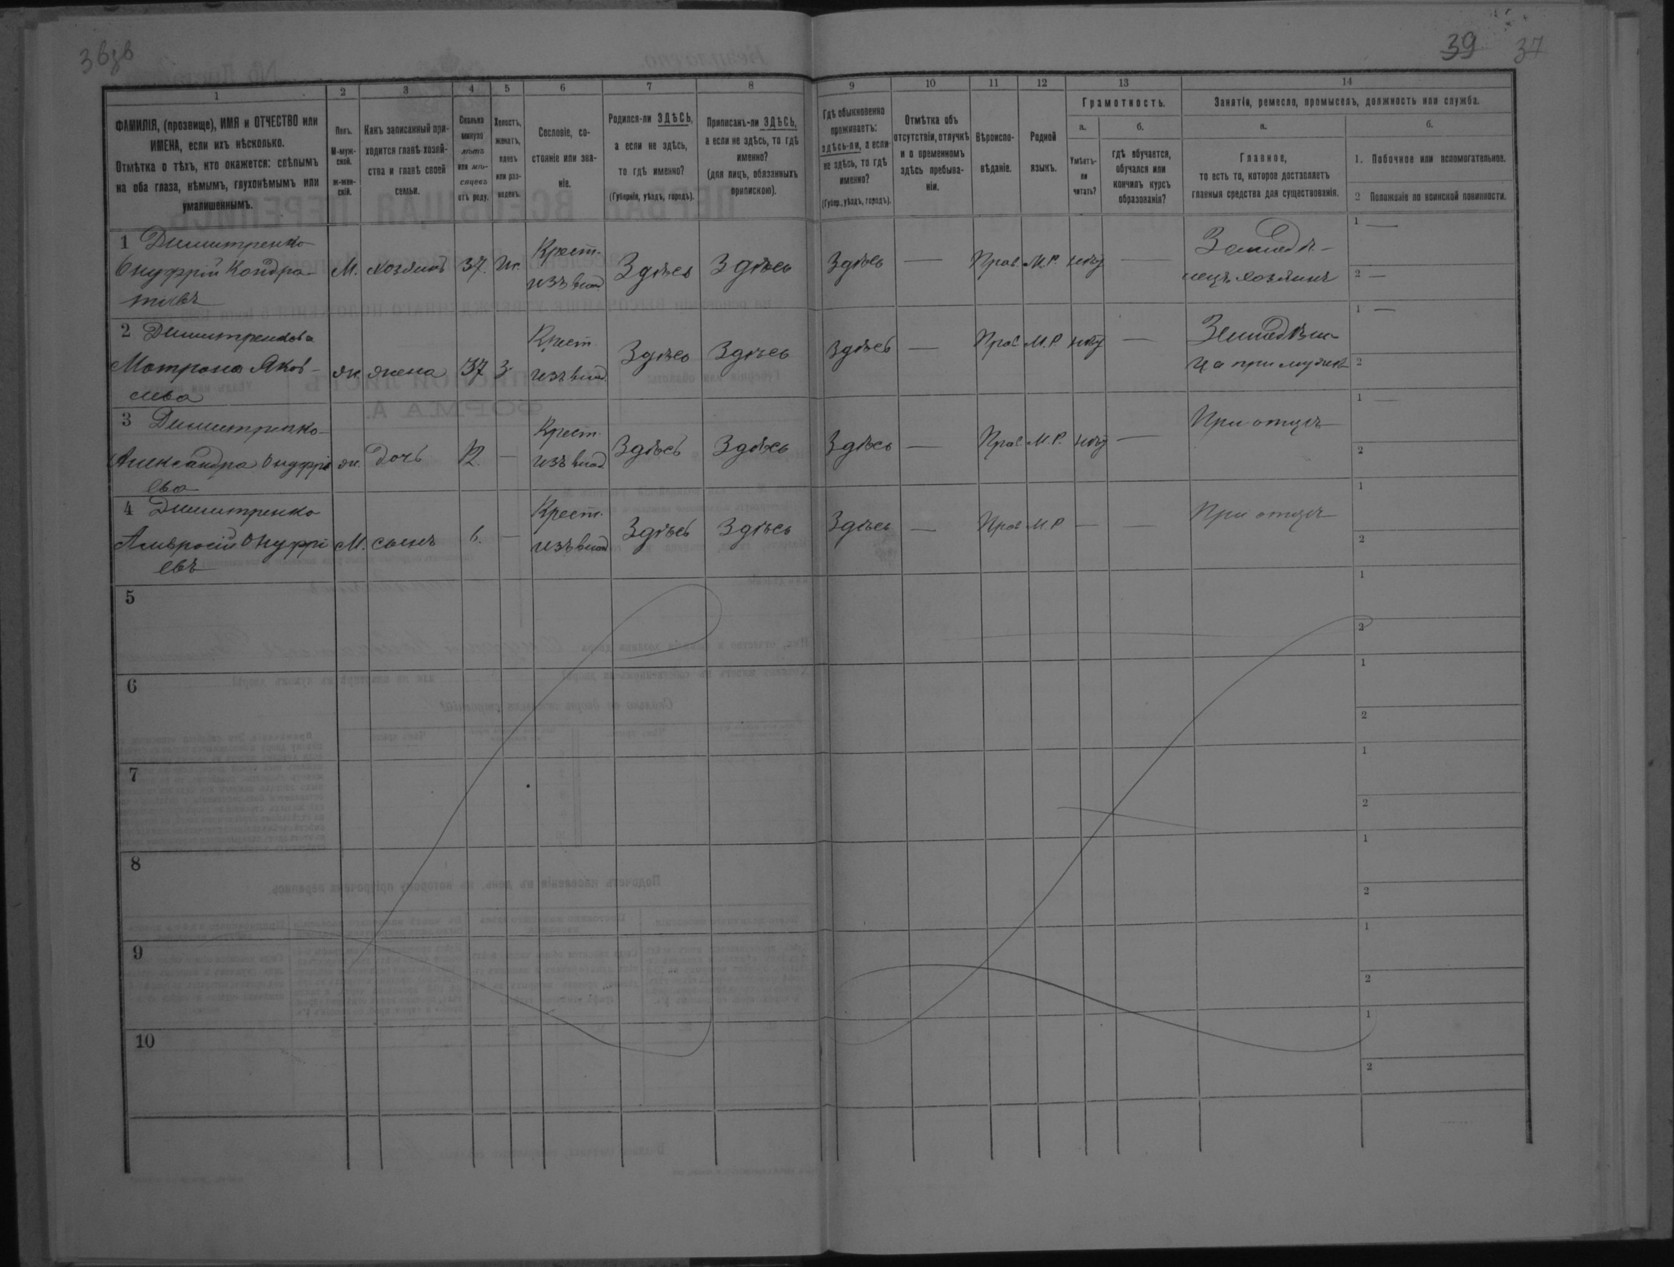 39 37
1 2 3 4 5 6 7 8 9 10 11 12 13 14
ФАМИЛІЯ, (прозвище), ИМЯ и ОТЧЕСТВО или
ИМЕНА, если ихъ нѣсколько.
Отмѣтка о тѣхъ, кто окажется: слѣпымъ
на оба глаза, нѣмымъ, глухонѣмымъ или
умалишеннымъ.
Полъ.
М-муж-
ской.
ж-жен-
скій.
Какъ записанный при-
ходится главѣ хозяй-
ства и главѣ своей
семьи.
Сколько
минуло
лѣтъ
или мѣ-
сяцевъ
отъ роду.
Холостъ,
женатъ,
вдовъ
или раз-
веденъ.
Сословіе, со-
стояніе или зва-
ніе.
Родился-ли ЗДѢСЬ,
а если не здѣсь,
то гдѣ именно?
(Губернія, уѣздъ, городъ).
Приписанъ-ли ЗДѢСЬ,
а если не здѣсь, то гдѣ
именно?
(для лицъ, обязанныхъ
припискою).
Гдѣ обыкновенно
проживаетъ:
здѣсь-ли, а если
не здѣсь, то гдѣ
именно?
(Губер., уѣздъ, городъ).
Отмѣтка объ
отсутствіи, отлучкѣ
и о временномъ
здѣсь пребыва-
ніи.
Вѣроиспо-
вѣданіе.
Родной
языкъ.
Грамотность.
а.
Умѣетъ-
ли
читать?
б.
гдѣ обучается,
обучался или
кончилъ курсъ
образованія?
Занятіе, ремесло, промыселъ, должность или служба.
а.
Главное,
то есть то, которое доставляетъ
главныя средства для существованія.
б.
1. Побочное или вспомогательное.
2 Положеніе по воинской повинности.
1 Димитренко
Онуфрій Кондра-
тьевъ
М. хозяинъ 37. ж.
Крест.
изъ влад
Здѣсь Здѣсь Здѣсь — Прав. М.Р. нѣт —
Земледѣ-
лецъ хозяинъ
1 —
2 —
2 Димитренкова
Матрона Яков-
лева
ж жена 37 З.
Крест.
изъ влад
Здѣсь Здѣсь Здѣсь — Прав. М.Р. нѣт —
1 —
2
3 Димитренко
Александра Онуфрі
ева
ж. дочь 12 —
Крест.
изъ влад
Здѣсь Здѣсь Здѣсь — Прав. М.Р. нѣт —
При отцѣ
1 —
2
4 Димитренко
Амвросій Онуфрі
евъ
М. сынъ 6. —
Крест.
изъ влад
Здѣсь Здѣсь Здѣсь — Прав. М.Р. — —
При отцѣ
1
2
5
1
2
6
1
2
7
1
2
8
1
2
9
1
2
10
1
2